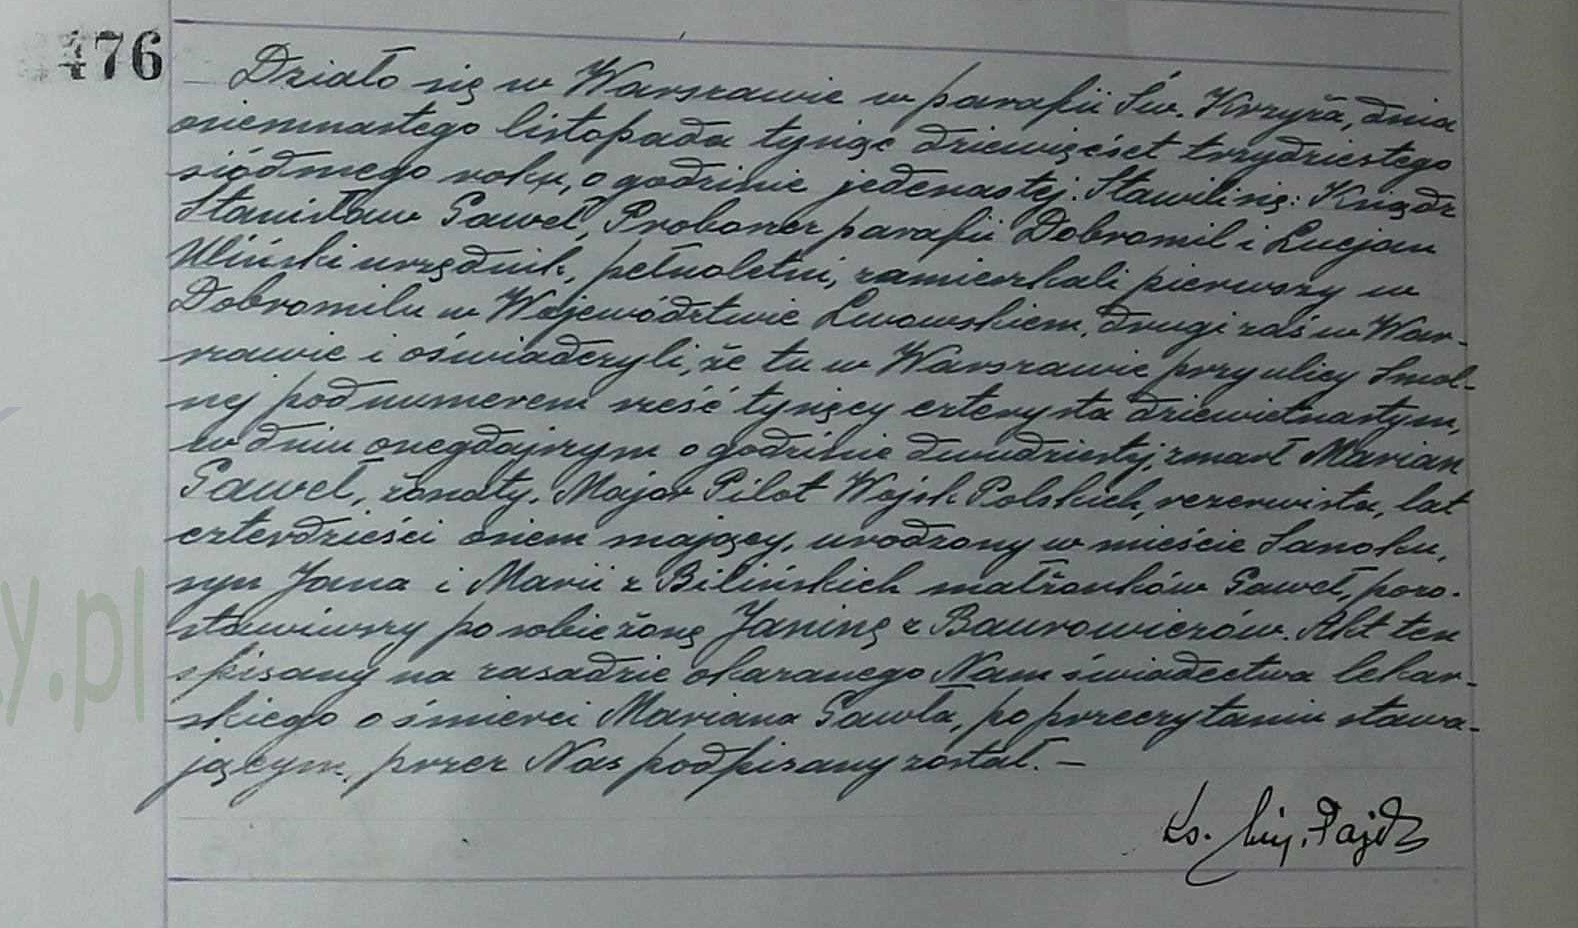 476
Działo się w Warszawie w parafii Św. Krzyża, dnia
osiemnastego listopada tysiąc dziewięćset trzydziestego
siódmego roku, o godzinie jedenastej. Stawili się: Ksiądz
Stanisław Gaweł, Proboszcz parafii Dobromil i Lucjan
urzędnik, pełnoletni, zamieszkali pierwszy w
Dobromilu w Województwie Lwowskiem, drugi zaś w War-
szawie i oświadczyli, że tu w Warszawie przy ulicy Smol-
nej pod numerem sześć tysięcy czterysta dziewietnastym,
w dniu onegdajszym o godzinie dwudziestej, zmarł Marian
Gaweł, żonaty, Major Pilot Wojsk Polskich, rezerwista, lat
czterdzieści osiem mający, urodzony w mieście Sanoku,
syn Jana i Marii z Bilińskich małżonków Gaweł, pozo-
stawiwszy po sobie żonę Janinę z Baurowiczów. Akt ten
spisany na zasadzie okazanego Nam świadectwa lekar-
skiego o śmierci Mariana Gawła, po przeczytaniu stawa-
jącym, przez Nas podpisany został. —
Ks.
y.pl